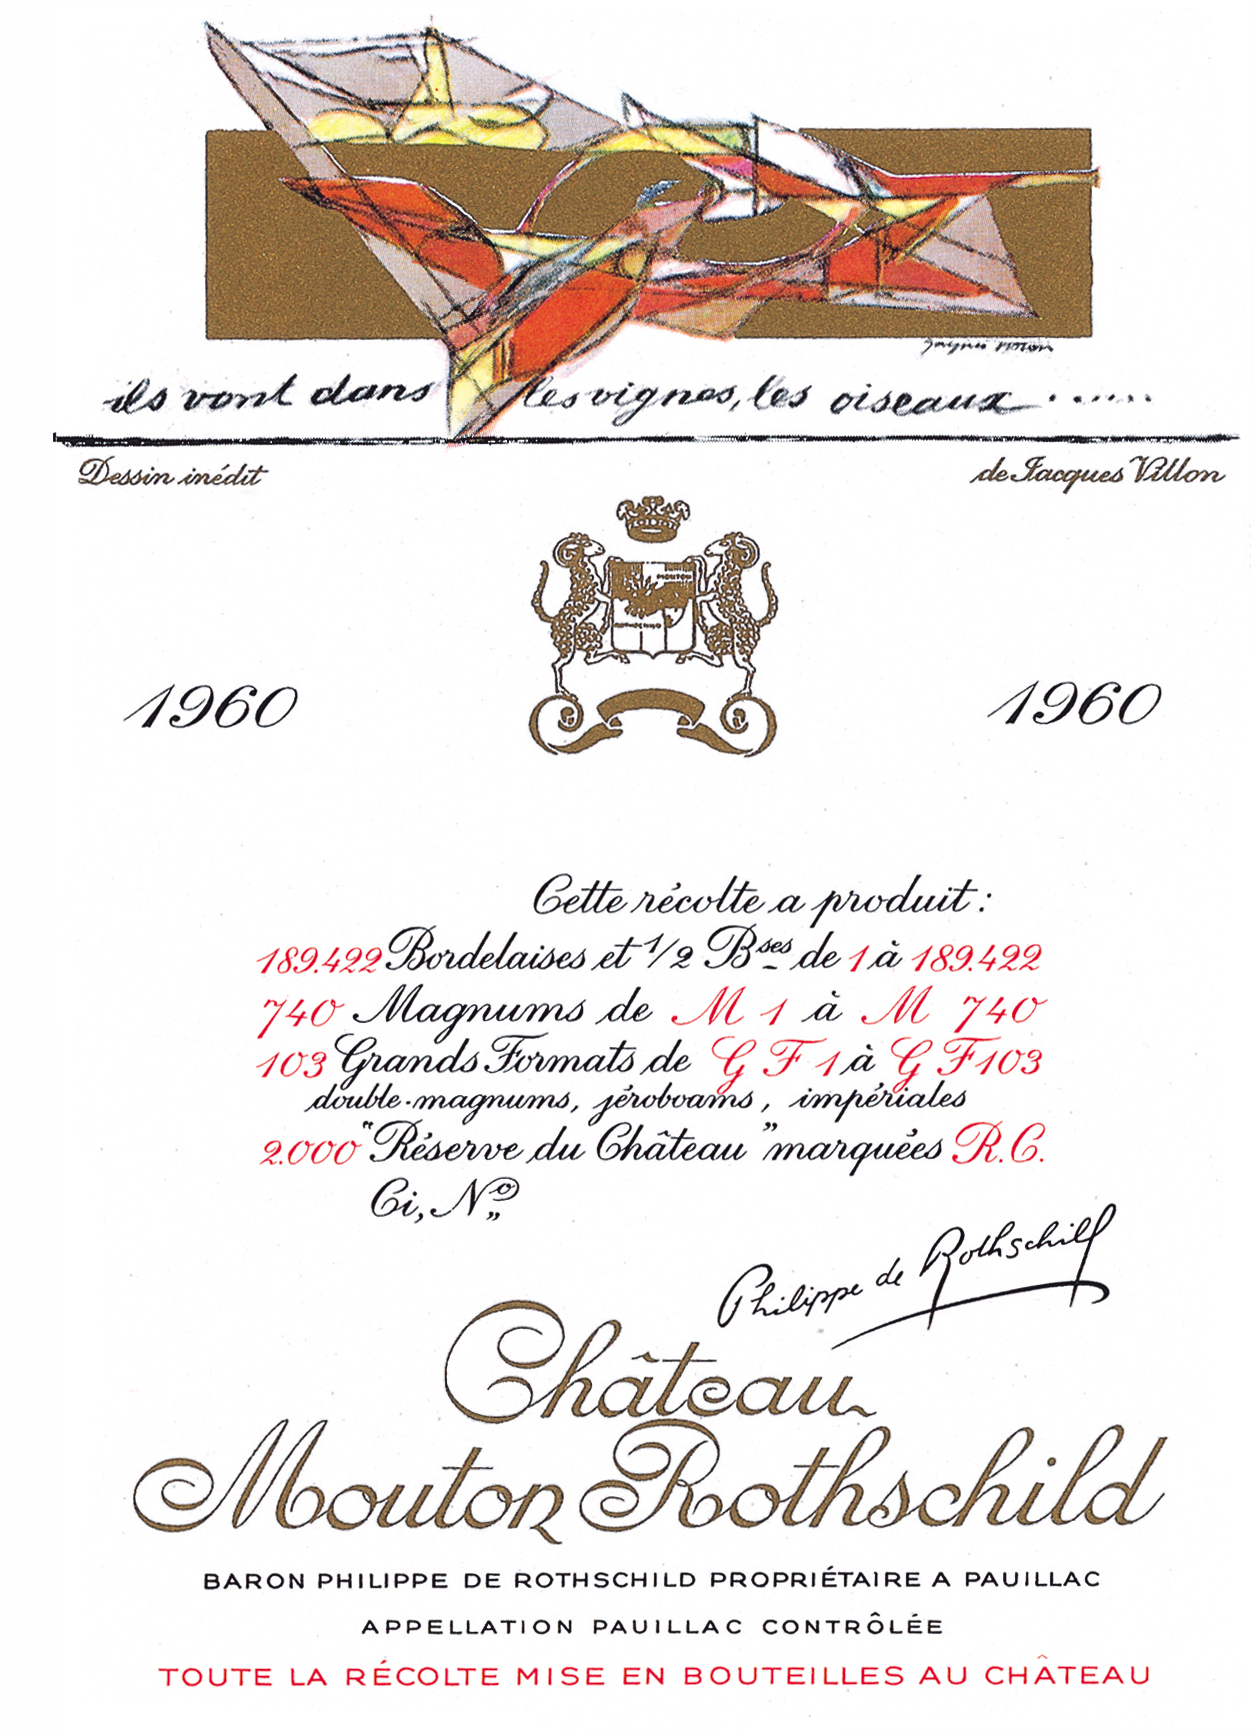 Jacques Villon
ils vont dans les vignes, les oiseaux ......
Dessin inédit de Jacques Villon
MOUTON
ROTHSCHILD
1960 1960
Cette récolte a produit :
189.422 Bordelaises et 1/2 Bses de 1 à 189.422
740 Magnums de M 1 à M 740
103 Grands Formats de G F 1 à G F 103
double-magnums, jéroboams, impériales
2.000 "Réserve du Château" marquées R.C.
Ci, No
Philippe de Rothschild
Château
Mouton Rothschild
BARON PHILIPPE DE ROTHSCHILD PROPRIÉTAIRE A PAUILLAC
APPELLATION PAUILLAC CONTRÔLÉE
TOUTE LA RÉCOLTE MISE EN BOUTEILLES AU CHÂTEAU